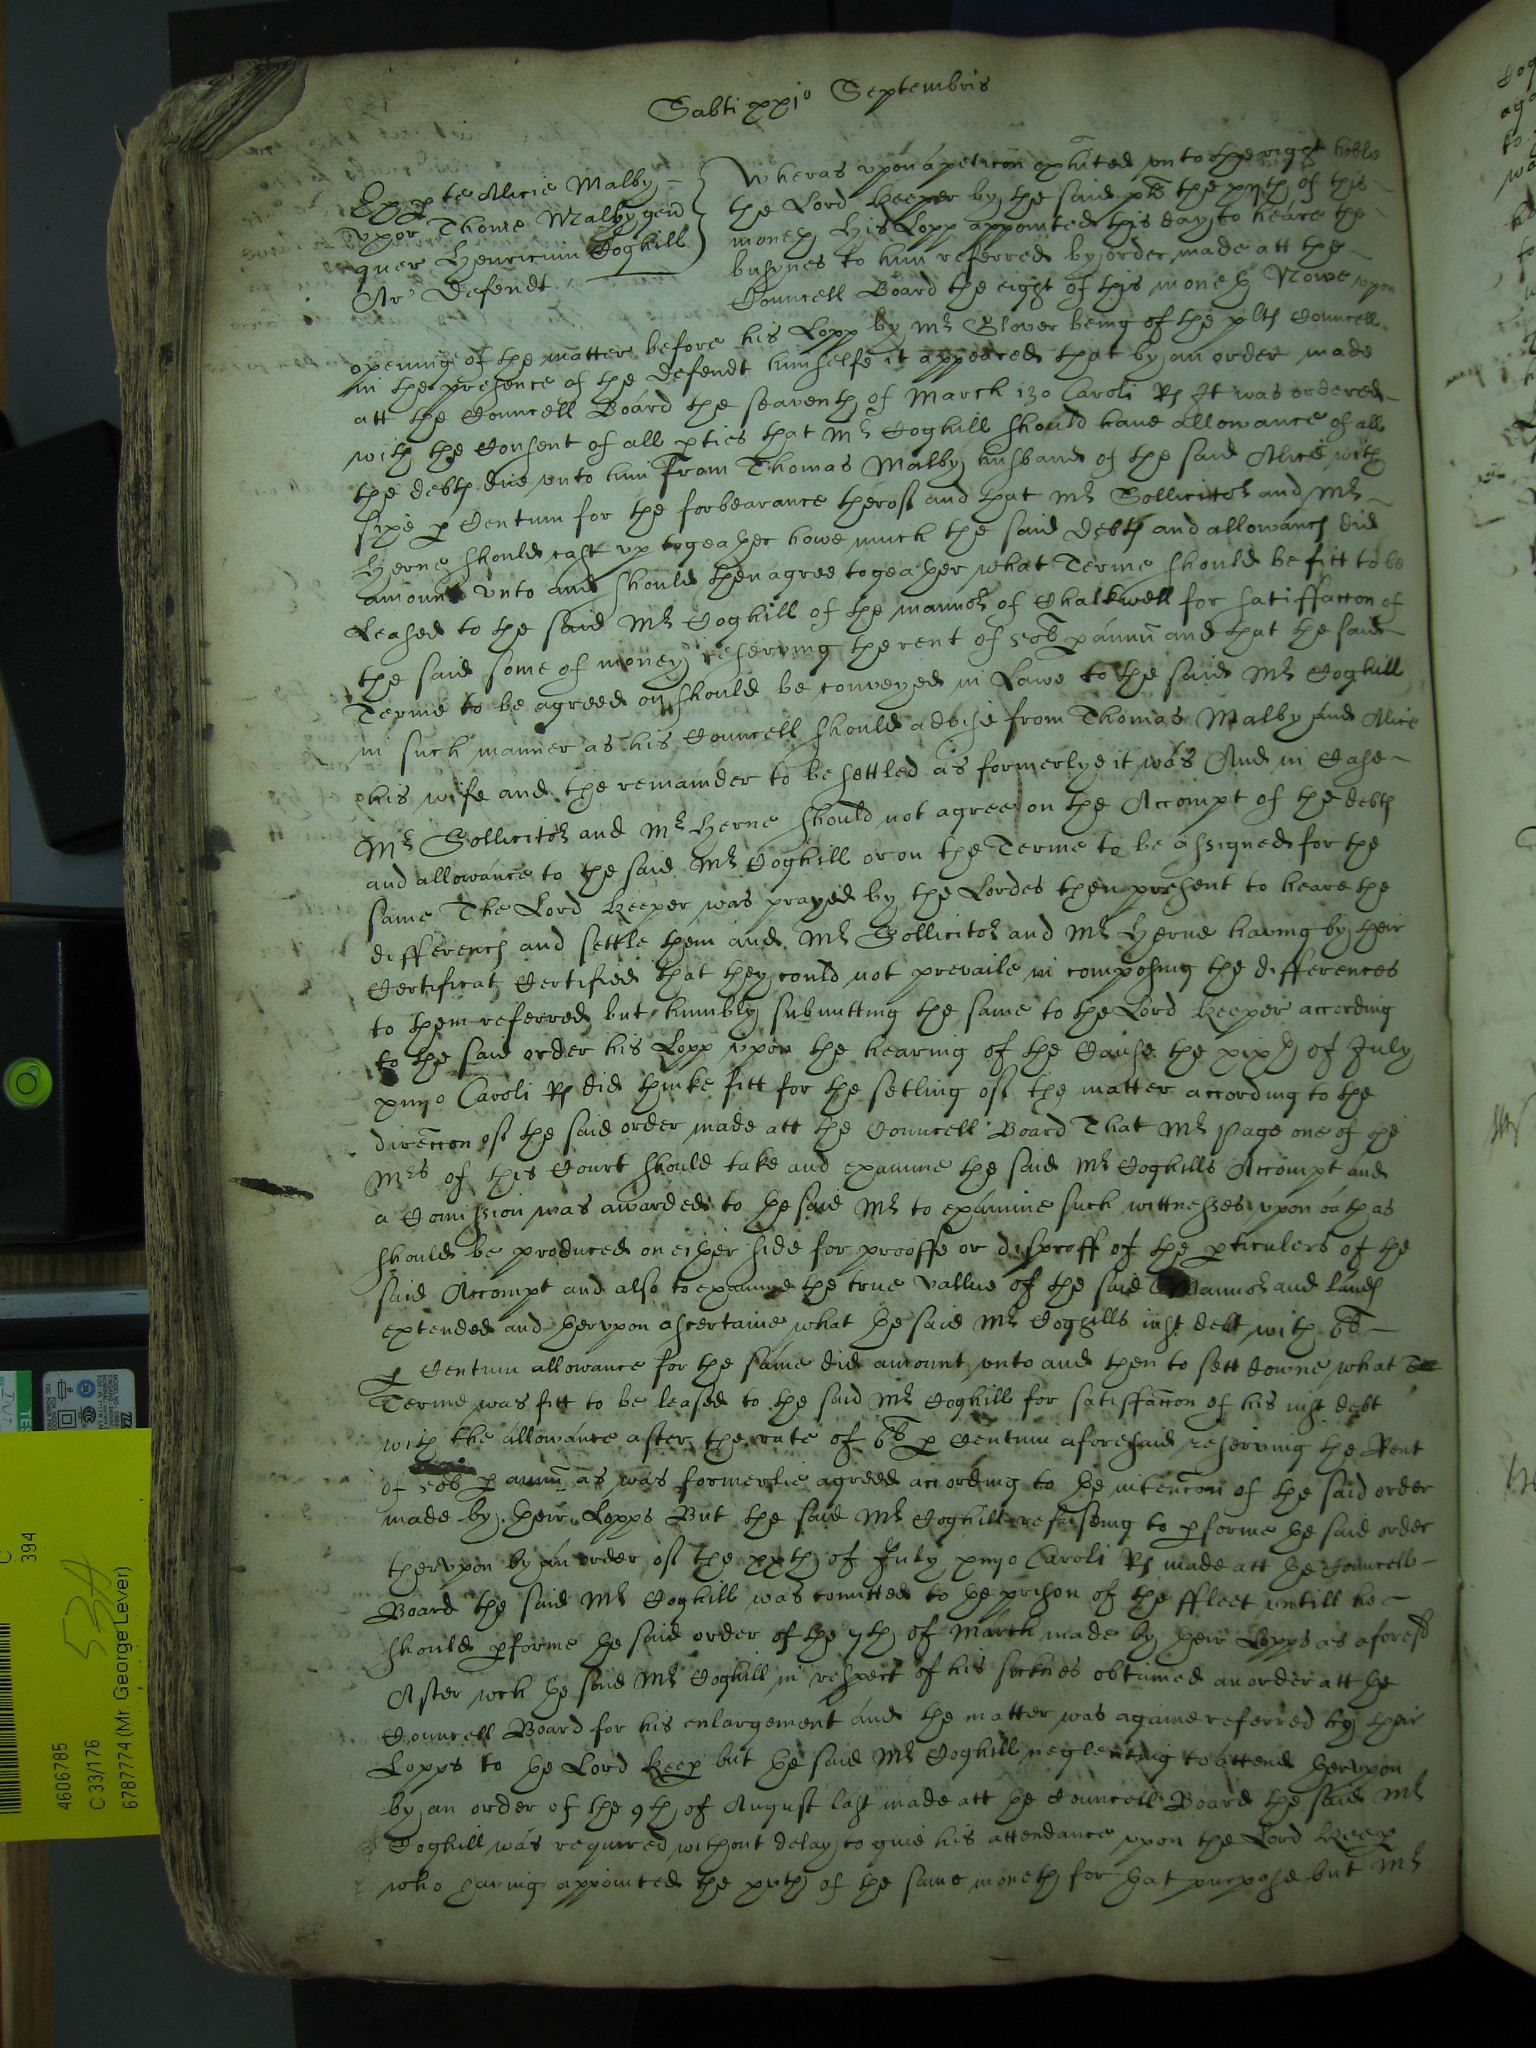 Sabti xxjo Septembris
Exp te Alicie Malby
vxor Thome Malby gen
quer Henricum Coghill
Ar Defendt
Wheras vpon a peticon exhited vnto the right hoble
the Lord keeper by the said plt the xijth of this
moneth his Lopp appointed this day to heare the
busynes to him referred by order made att the
Councell Board the eight of this moneth Nowe vpon
opening of the matter before his Lopp by Mr Glover being of the plts Councell
in the presence of the defendt himselfe it appeared that by an order made
att the Councell Board the seaventh of March 13o Caroli Rs It was ordered
with the Consent of all pties that Mr Coghill should have allowance of all
the debts due vnto him from Thomas Malby husband of the said Alice with
sixe p Centum for the forbearance therof and that Mr Sollicitor and Mr
Herne should cast vp togeather howe much the said debts and allowances did
amount vnto and should then agree togeather what Terme should be fitt to be
Leased to the said Mr Coghill of the mannor of Chalkwell for satisfaccon of
the said some of money reserving the rent of 50l p annu and that the said
Terme to be agreed on should be conveyed in Lawe to the said Mr Coghill
in such manner as his Councell should advise from Thomas Malby and Alice
his wife and the remainder to be settled as formerlye it was And in Case
Mr Sollicitor and Mr Herne should not agree on the Accompt of the debts
and allowance to the said Mr Coghill or on the Terme to be assigned for the
same The Lord keeper was prayed by the Lordes then present to heare the
differences and settle them and Mr Sollicitor and Mr Herne having by their
Certificat Certified that they could not prevaile in composing the differences
to them referred but humbly submitting the same to the Lord keeper according
to the said order his Lopp vpon the hearing of the Cause the xixth of July
xiiijo Caroli Rs did thinke fitt for the setling of the matter according to the
direccon of the said order made att the Councell Board That Mr Page one of the
Mrs of this Court should take and examine the said Mr Coghills Accompt and
a Comission was awarded to the said Mr to examine such wittnesses vpon oath as
should be produced on either side for prooffe or disprooff of the pticulers of the
said Accompt and also to examine the true vallue of the said Mannor and Lands
extended and thervpon ascertaine what the said Mr Coghills iust debt with 6l
p Centum allowance for the same did amount vnto and then to sett downe what
Terme was fitt to be leased to the said Mr Coghill for satisfaccon of his iust debt
with the allowance after the rate of 6l p Centum aforesaid reserving the Rent
of 50l p annu as was formerlie agreed according to the intencon of the said order
made by their Lopps But the said Mr Coghill refuseing to pforme the said order
thervpon by an order of the xxth of July xiiijo Caroli Rs made att the Councell
Board the said Mr Coghill was comitted to the prison of the ffleet vntill he
should pforme the said order of the 7th of March made by their Lopps as aforesd
After wch the said Mr Coghill in respect of his sicknes obtained an order att the
Councell Board for his enlargement and the matter was againe referred by their
Lopps to the Lord keep but the said Mr Coghill neglecting to attend thervpon
by an order of the 9th of August last made att the Councell Board the said Mr
Coghill was required without delay to give his attendance vpon the Lord keep
who having appointed the xvth of the same moneth for that purpose but Mr
4606785
C 33/176
6787774 (Mr. George Lever)
C
394
534